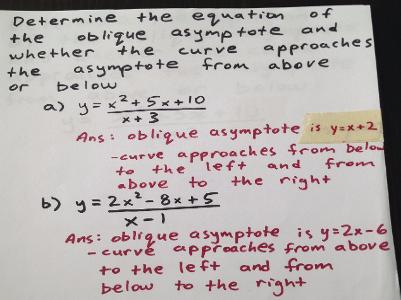 Determine the equation of
the oblique asymptote and
whether the curve approaches
the asymptote from above
or below
a) y = x² + 5x + 10 / x + 3
Ans: oblique asymptote is y = x + 2
- curve approaches from below
to the left and from
above to the right
b) y = 2x² - 8x + 5 / x - 1
Ans: oblique asymptote is y = 2x - 6
- curve approaches from above
to the left and from
below to the right